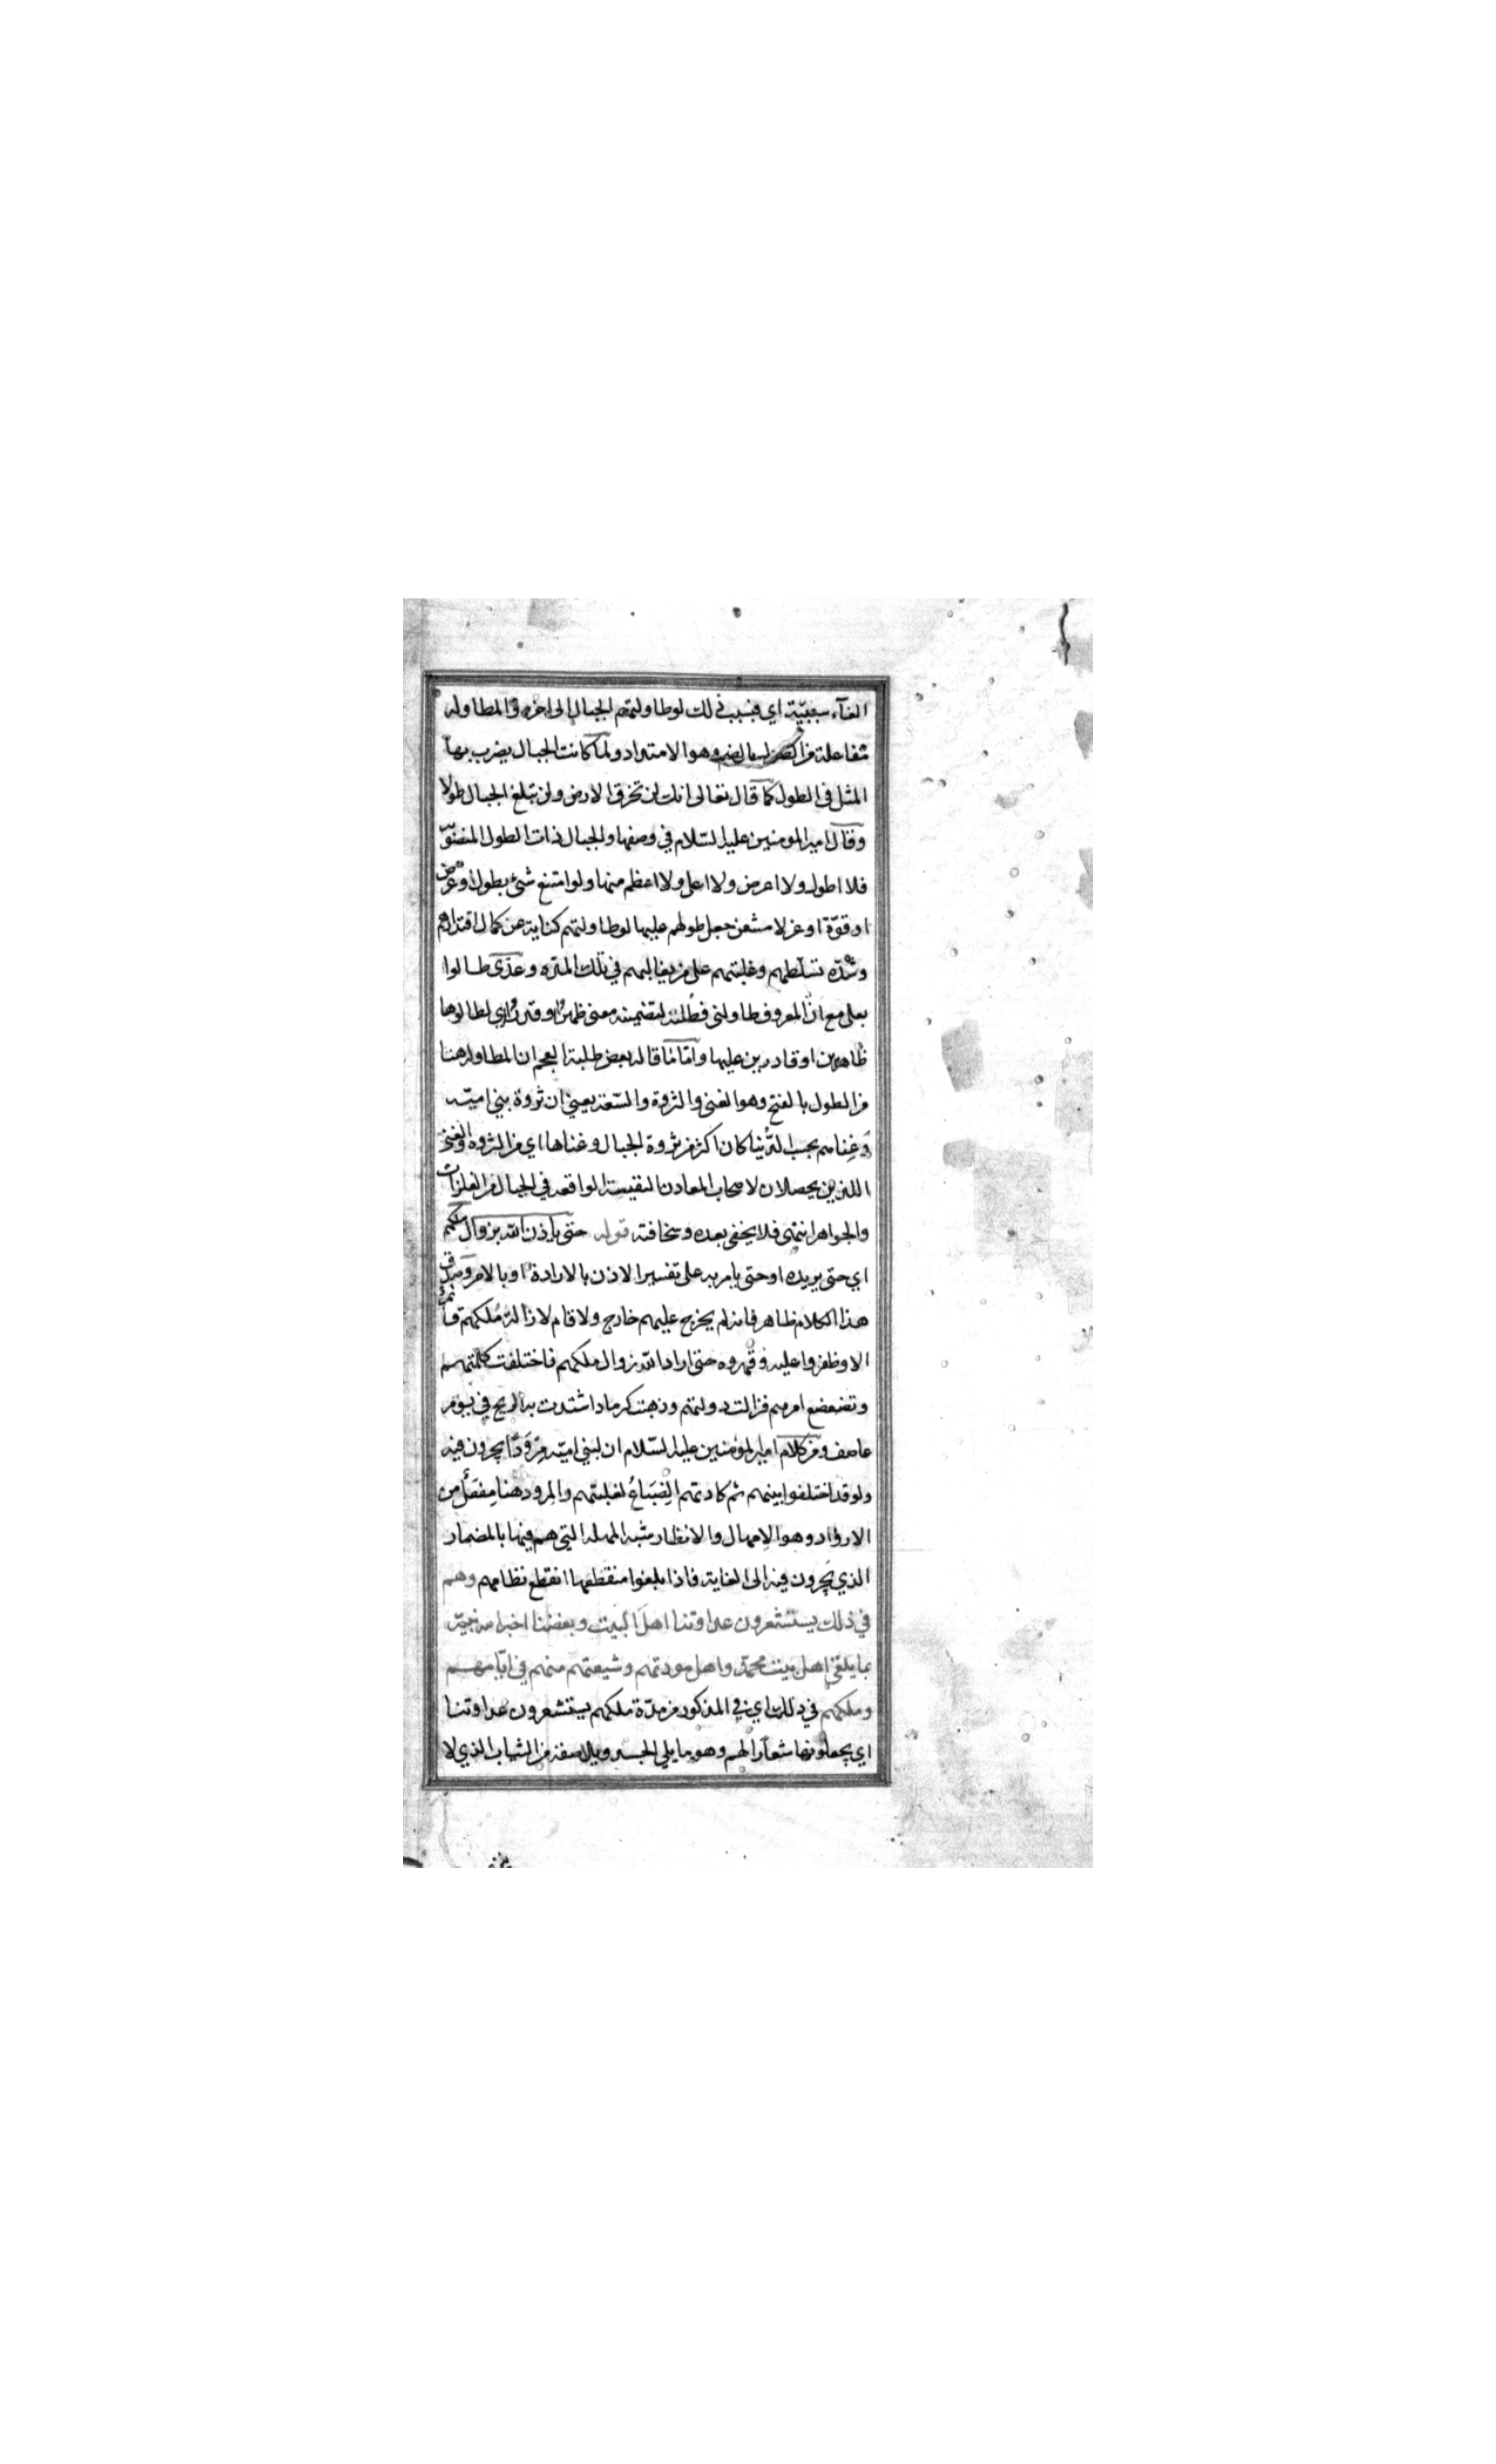 الفآء سببيّة اي فبسبب ذلك لو طاولتهم الجبال الى اخره والمطاوله
مفاعلة من الطول بالضم وهو الامتداد ولما كانت الجبال يضرب بها
المثل في الطول كما قال تعالى انك لن تخرق الارض ولن تبلغ الجبال طولا
وقال امير المومنين عليه السّلام في وصفها والجبال ذات الطول المنصوبة
فلا اطول ولا اعرض ولا اعلى ولا اعظم منها ولو امتنع شئ بطول او عرض
او قوّة او عز لامتنعن جعل طولهم عليها لو طاولتهم كناية عن كمال اقتدارهم
وشدّه تسلّطهم وغلبتهم على من يغالبهم في تلك المدّه وعدّى طالوا
بعلى مع انّ المعروف طاولنى فطُلته لتضمينه معنى ظهروا وقدروا اي لطالوها
ظاهرين او قادرين عليها وامّا ما قاله بعض طلبة العجم ان المطاوله هنا
من الطول بالفتح وهو الغنى والثروة والسّعة يعني ان ثروة بني اميّه
وغِناهم بحسب الدُّنيا كان اكثر من ثروة الجبال وغناها اي من الثروه والغنى
اللذين يحصلان لاصحاب المعادن النفيسة الواقعه في الجبال من الفلزات
والجواهر انتهى فلا يخفى بعده وسخافته قوله حتى ياذن الله بزوال ملكهم
اي حتى يريده او حتى يامر به على تفسير الاذن بالارادة او بالامر وصدق
هذا الكلام ظاهر فانه لم يخرج عليهم خارج ولا قام لازالة مُلكهم قائم
الا وظفروا عليه وقهروه حتى اراد الله زوال ملكهم فاختلفت كلمتهم
وتضعضع امرهم فزالت دولتهم وذهبت كرماد اشتدت به الريح في يوم
عاصف ومن كلام امير المؤمنين عليه السّلام ان لبني اميّه مِرْوَدًا يجرون فيه
ولو قد اختلفوا بينهم ثم كادتهم الضِبَاعُ لغلبتهم والمِرود هنا مِفعَلٌ من
الارواد وهو الامهال والانظار شبه المهله التي هم فيها بالمضمار
الذي يجرون فيه الى الغاية فاذا بلغوا منقطعها انقطع نظامهم وهم
في ذلك يستشعرون عداوتنا اهل البيت وبغضنا اخبر الله نبيّه
بما يلقى اهل بيت محمّد واهل مودتهم وشيعتهم منهم في ايّامهم
وملكهم في ذلك اي في المذكور من مدّة ملكهم يستشعرون عداوتنا
اي يجعلونها شعارًا لهم وهو ما يلي الجسد ويلاصقه من الثياب الذي لا